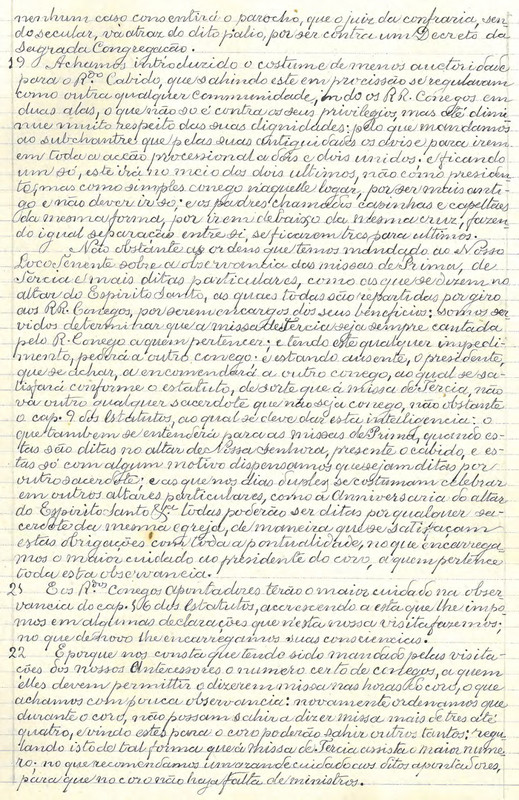 nenhum caso consentirá o parocho, que o juiz da confraria, sen-
do secular, vá atraz do dito palio, por ser contra um Decreto da
Sagrada Congregação.
19 Achamos introduzido o costume de menos auctoridade
para o R.mo Cabido, que sahindo este em procissão se regulavam
como outra qualquer communidade, indo os RR. Conegos em
duas alas, o que não só é contra os seus privilegios, mas lhe dimi-
nue muito respeito das suas dignidades: pelo que mandamos
ao subchantre que pelas suas antiguidades os avise para irem
em toda a acção processional a dois e dois unidos: e ficando
um só, este irá no meio dos dois ultimos, não como presiden-
te, mas como simples conego n'aquelle logar, por ser mais anti-
go e não dever ir só; e os padres chamados capinhas e capellães
da mesma forma, por irem debaixo da mesma cruz, fazen-
do igual separação entre si, se ficarem tres para ultimos.
Não obstante as ordens que temos mandado ao Nosso
Loco Tenente sobre a observancia das missas de Prima, de
Tercia e mais ditas particulares, como as que se dizem no
altar do Espirito Santo, as quaes todas são repartidas por giro
aos RR. Conegos, por serem encargos dos seus beneficios: somos ser-
vidos determinar que a missa de Tercia seja sempre cantada
pelo R. Conego a quem pertencer: e tendo este qualquer impedi-
mento, pedirá a outro conego: e estando ausente, o presidente,
que se achar, a encomendará a outro conego, ao qual se sa-
tisfará conforme o estatuto, de sorte que á missa de Tercia, não
vá outro qualquer sacerdote que não seja conego, não obstante
o cap. 9 dos Estatutos, ao qual se deve dar esta intelligencia: o
que tambem se entenderá para as missas de Prima, quando es-
tas são ditas no altar de Nossa Senhora, presente o cabido, e es-
tas só com algum motivo dispensamos que sejam ditas por
outro sacerdote; e as que nos dias duplex se costumam celebrar
em outros altares particulares, como a Anniversaria do altar
do Espirito Santo &.ra todas poderão ser ditas por qualquer sa-
cerdote da mesma egreja, de maneira que se satisfaçam
estas obrigações com toda a pontualidade, no que encarrega-
mos o maior cuidado ao presidente do coro, a quem pertence
toda esta observancia.
21 E os R.dos Conegos Apontadores terão o maior cuidado na obser-
vancia do cap. 56 dos Estatutos, accrescendo a esta que lhe impo-
mos em algumas declarações que n'esta nossa visita fazemos;
no que de novo lhe encarregamos suas consciencias.
22 E porque nos consta que tendo sido mandado pelas visita-
ções dos nossos Antecessores o numero certo de conegos, a quem
elles devem permittir o dizerem missa nas horas do coro, o que
achamos com pouca observancia: novamente ordenamos que
durante o coro, não possam sahir a dizer missa mais de tres até
quatro, e vindo estes para o coro poderão sahir outros tantos: regu-
lando isto de tal forma que á missa de Tercia assista o maior nume-
ro: no que recomendamos um grande cuidado aos ditos apontadores,
para que no coro não haja falta de ministros.